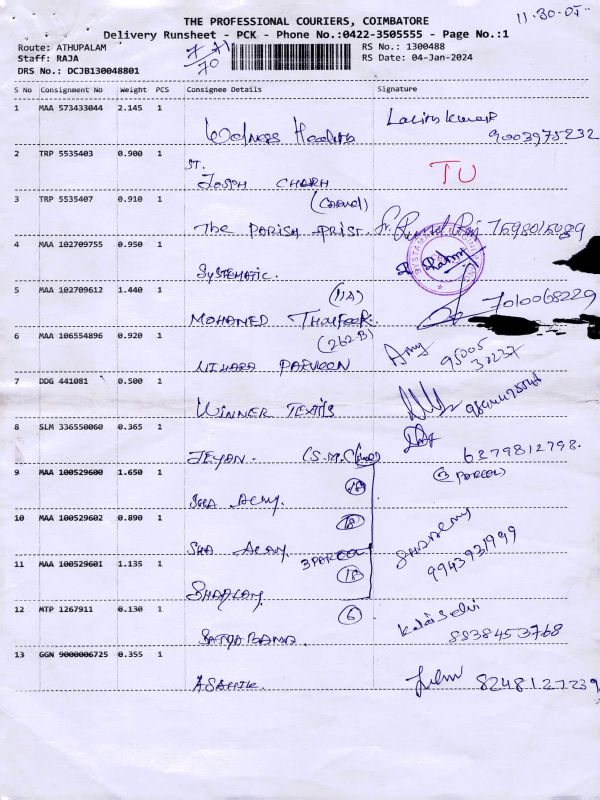 11.30.05
THE PROFESSIONAL COURIERS, COIMBATORE
Delivery Runsheet - PCK - Phone No.:0422-3505555 - Page No.:1
Route: ATHUPALAM RS No.: 1300488
Staff: RAJA RS Date: 04-Jan-2024
DRS No.: DCJB130048801
S No Consignment No Weight PCS Consignee Details Signature
1 MAA 573433044 2.145 1
Lalith Kumar
9003975232
2 TRP 5535403 0.900 1 ST.
JOSPH CHARH TU
3 TRP 5535407 0.910 1
The PARISH PRIST. 7598015089
4 MAA 102709755 0.950 1
SYSTEMATIC.
5 MAA 102709612 1.440 1 (11A)
MOHAMED 7010068229
6 MAA 106554896 0.920 1 (262B)
NIHARA PARVEEN 95005
7 DDG 441081 0.500 1
WINNER TEXTILS
8 SLM 336550060 0.365 1
JEYAN. (S.M. 6279812798.
9 MAA 100529600 1.650 1 (3 PARCEL)
10 MAA 100529602 0.890 1
3 PARCEL
11 MAA 100529601 1.135 1 9943931949
12 MTP 1267911 0.130 1 6 Kalaiselvi
SATYABAMA. 8838453768
13 GGN 9000006725 0.355 1
ASAHIK. 8248127239